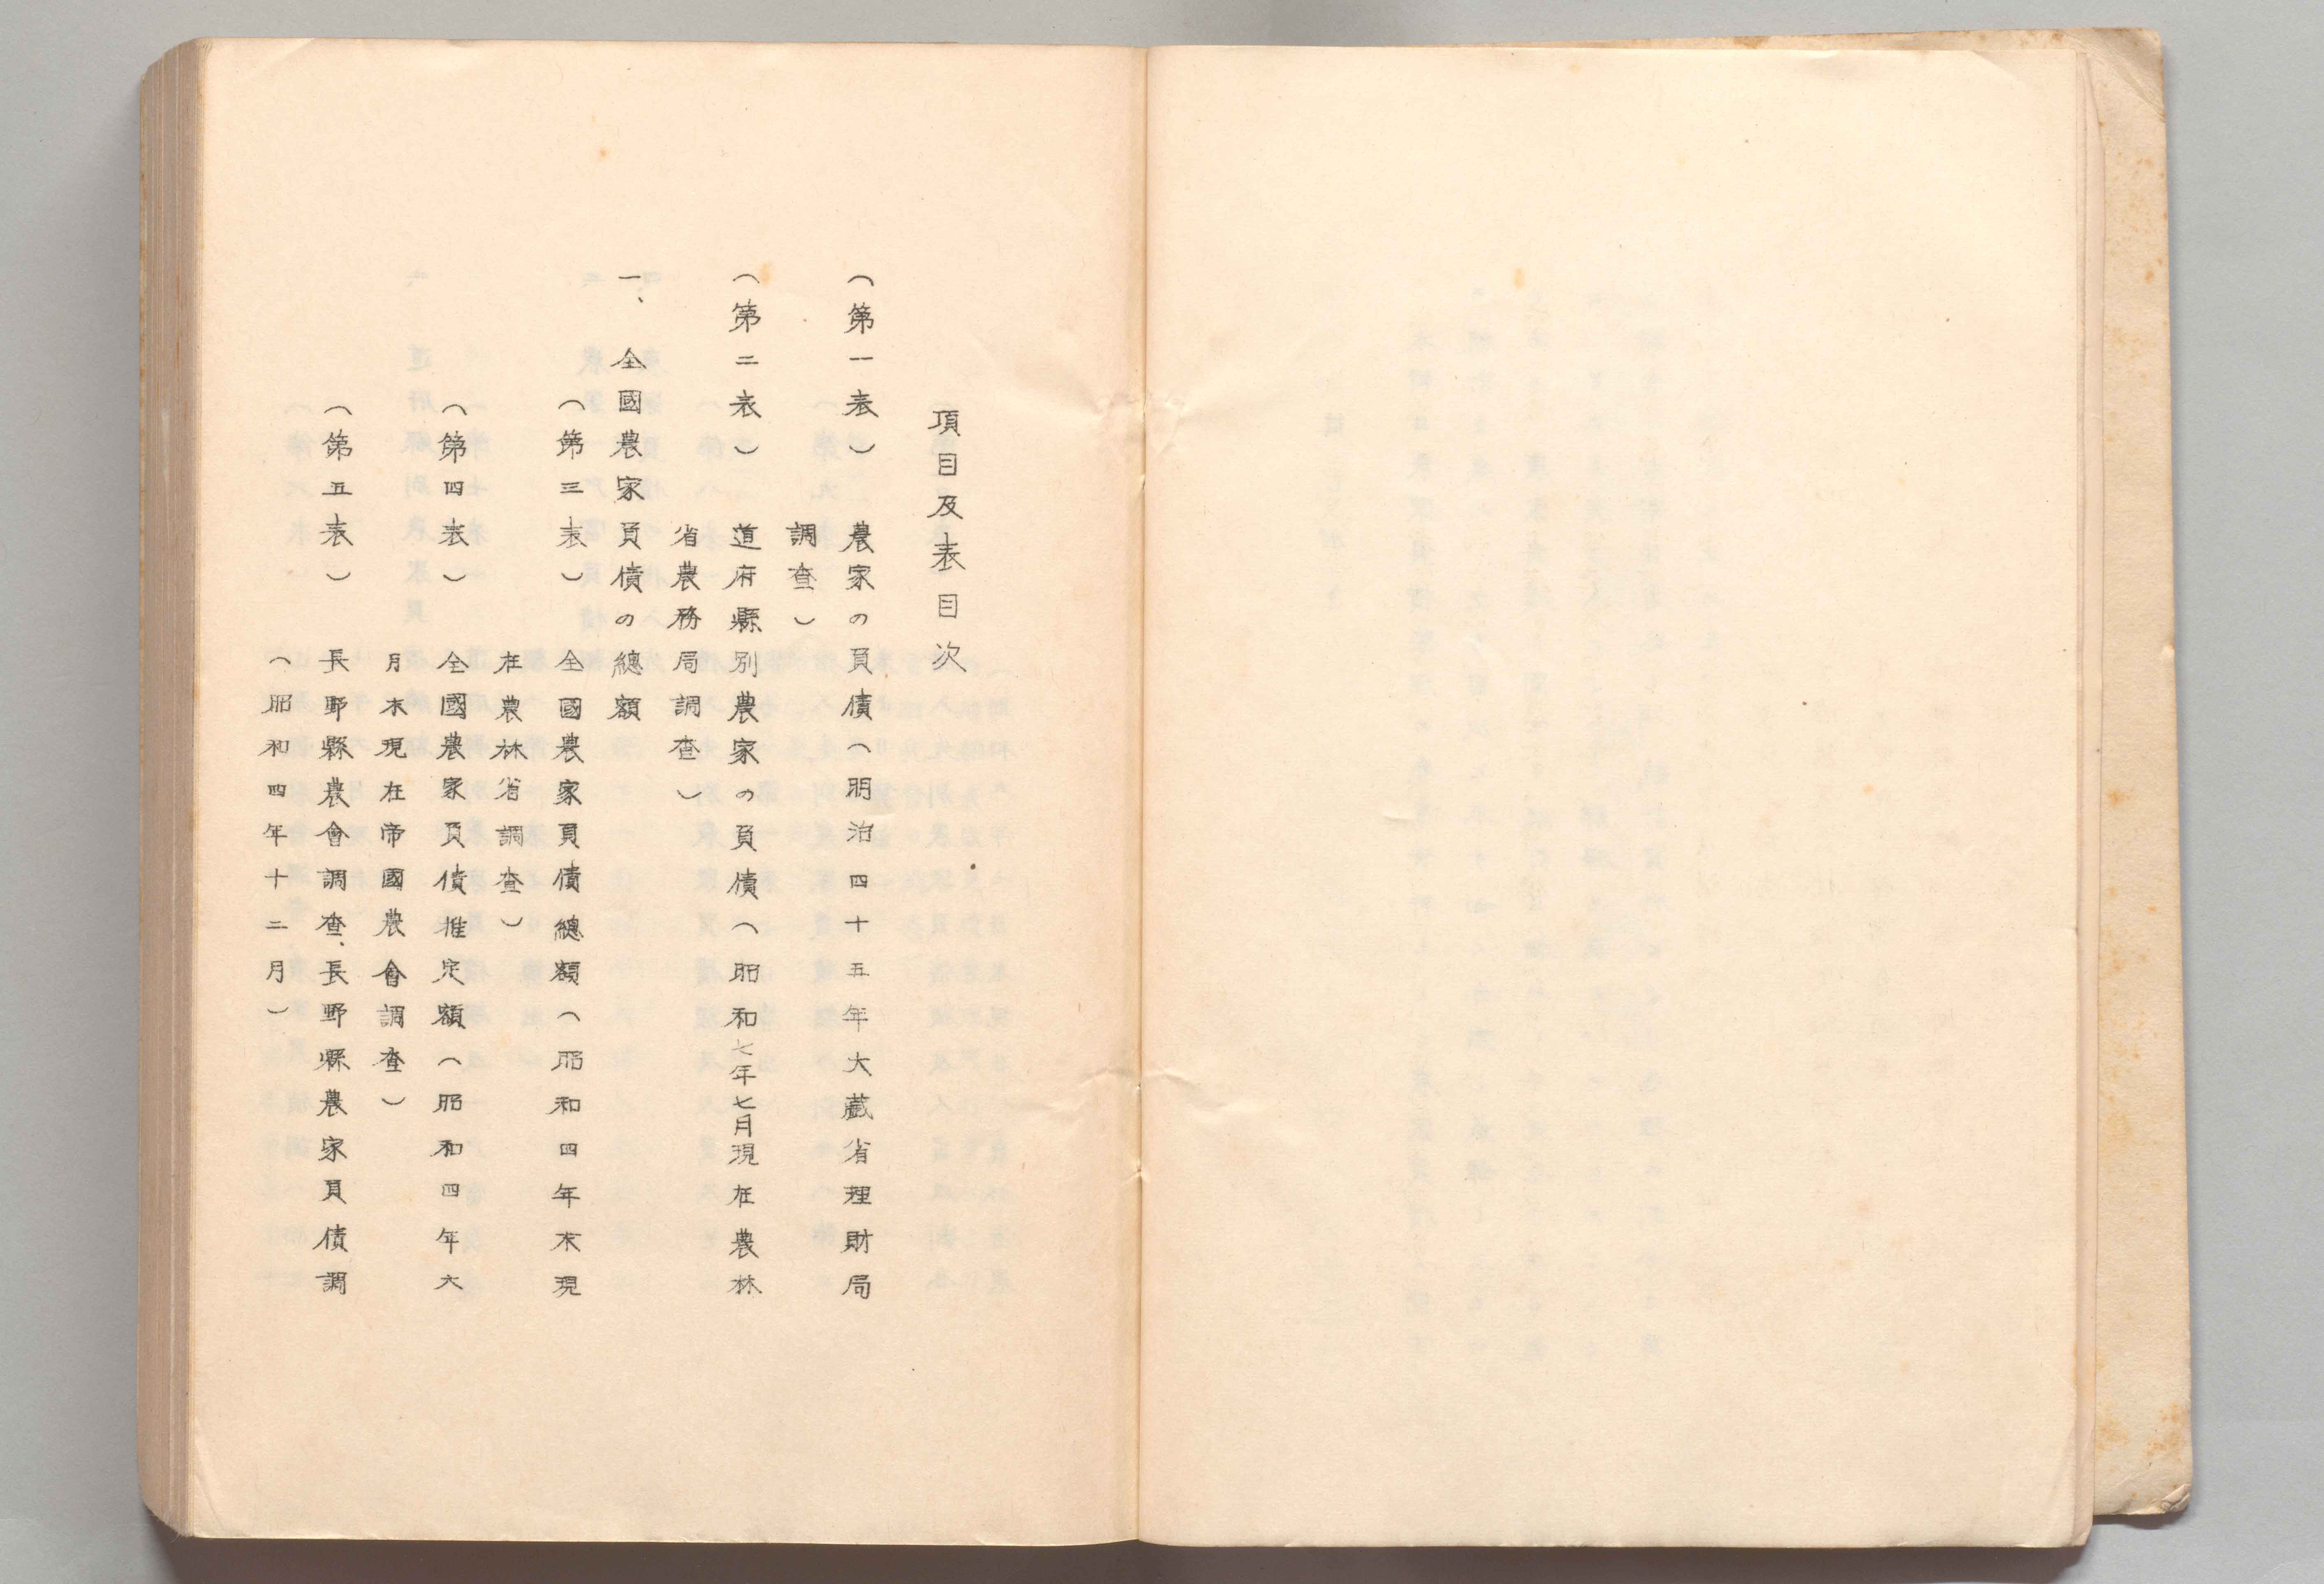 項目及表目次
（第一表）　農家の負債（明治四十五年大藏省理財局
調査）
（第二表）　道府縣別農家の負債（昭和七年七月現在農林
省農務局調査）
一、全國農家負債の總額
（第三表）　全國農家負債總額（昭和四年末現
在農林省調査）
（第四表）　全國農家負債推定額（昭和四年六
月末現在帝國農會調査）
（第五表）　長野縣農會調査、長野縣農家負債調
（昭和四年十二月）